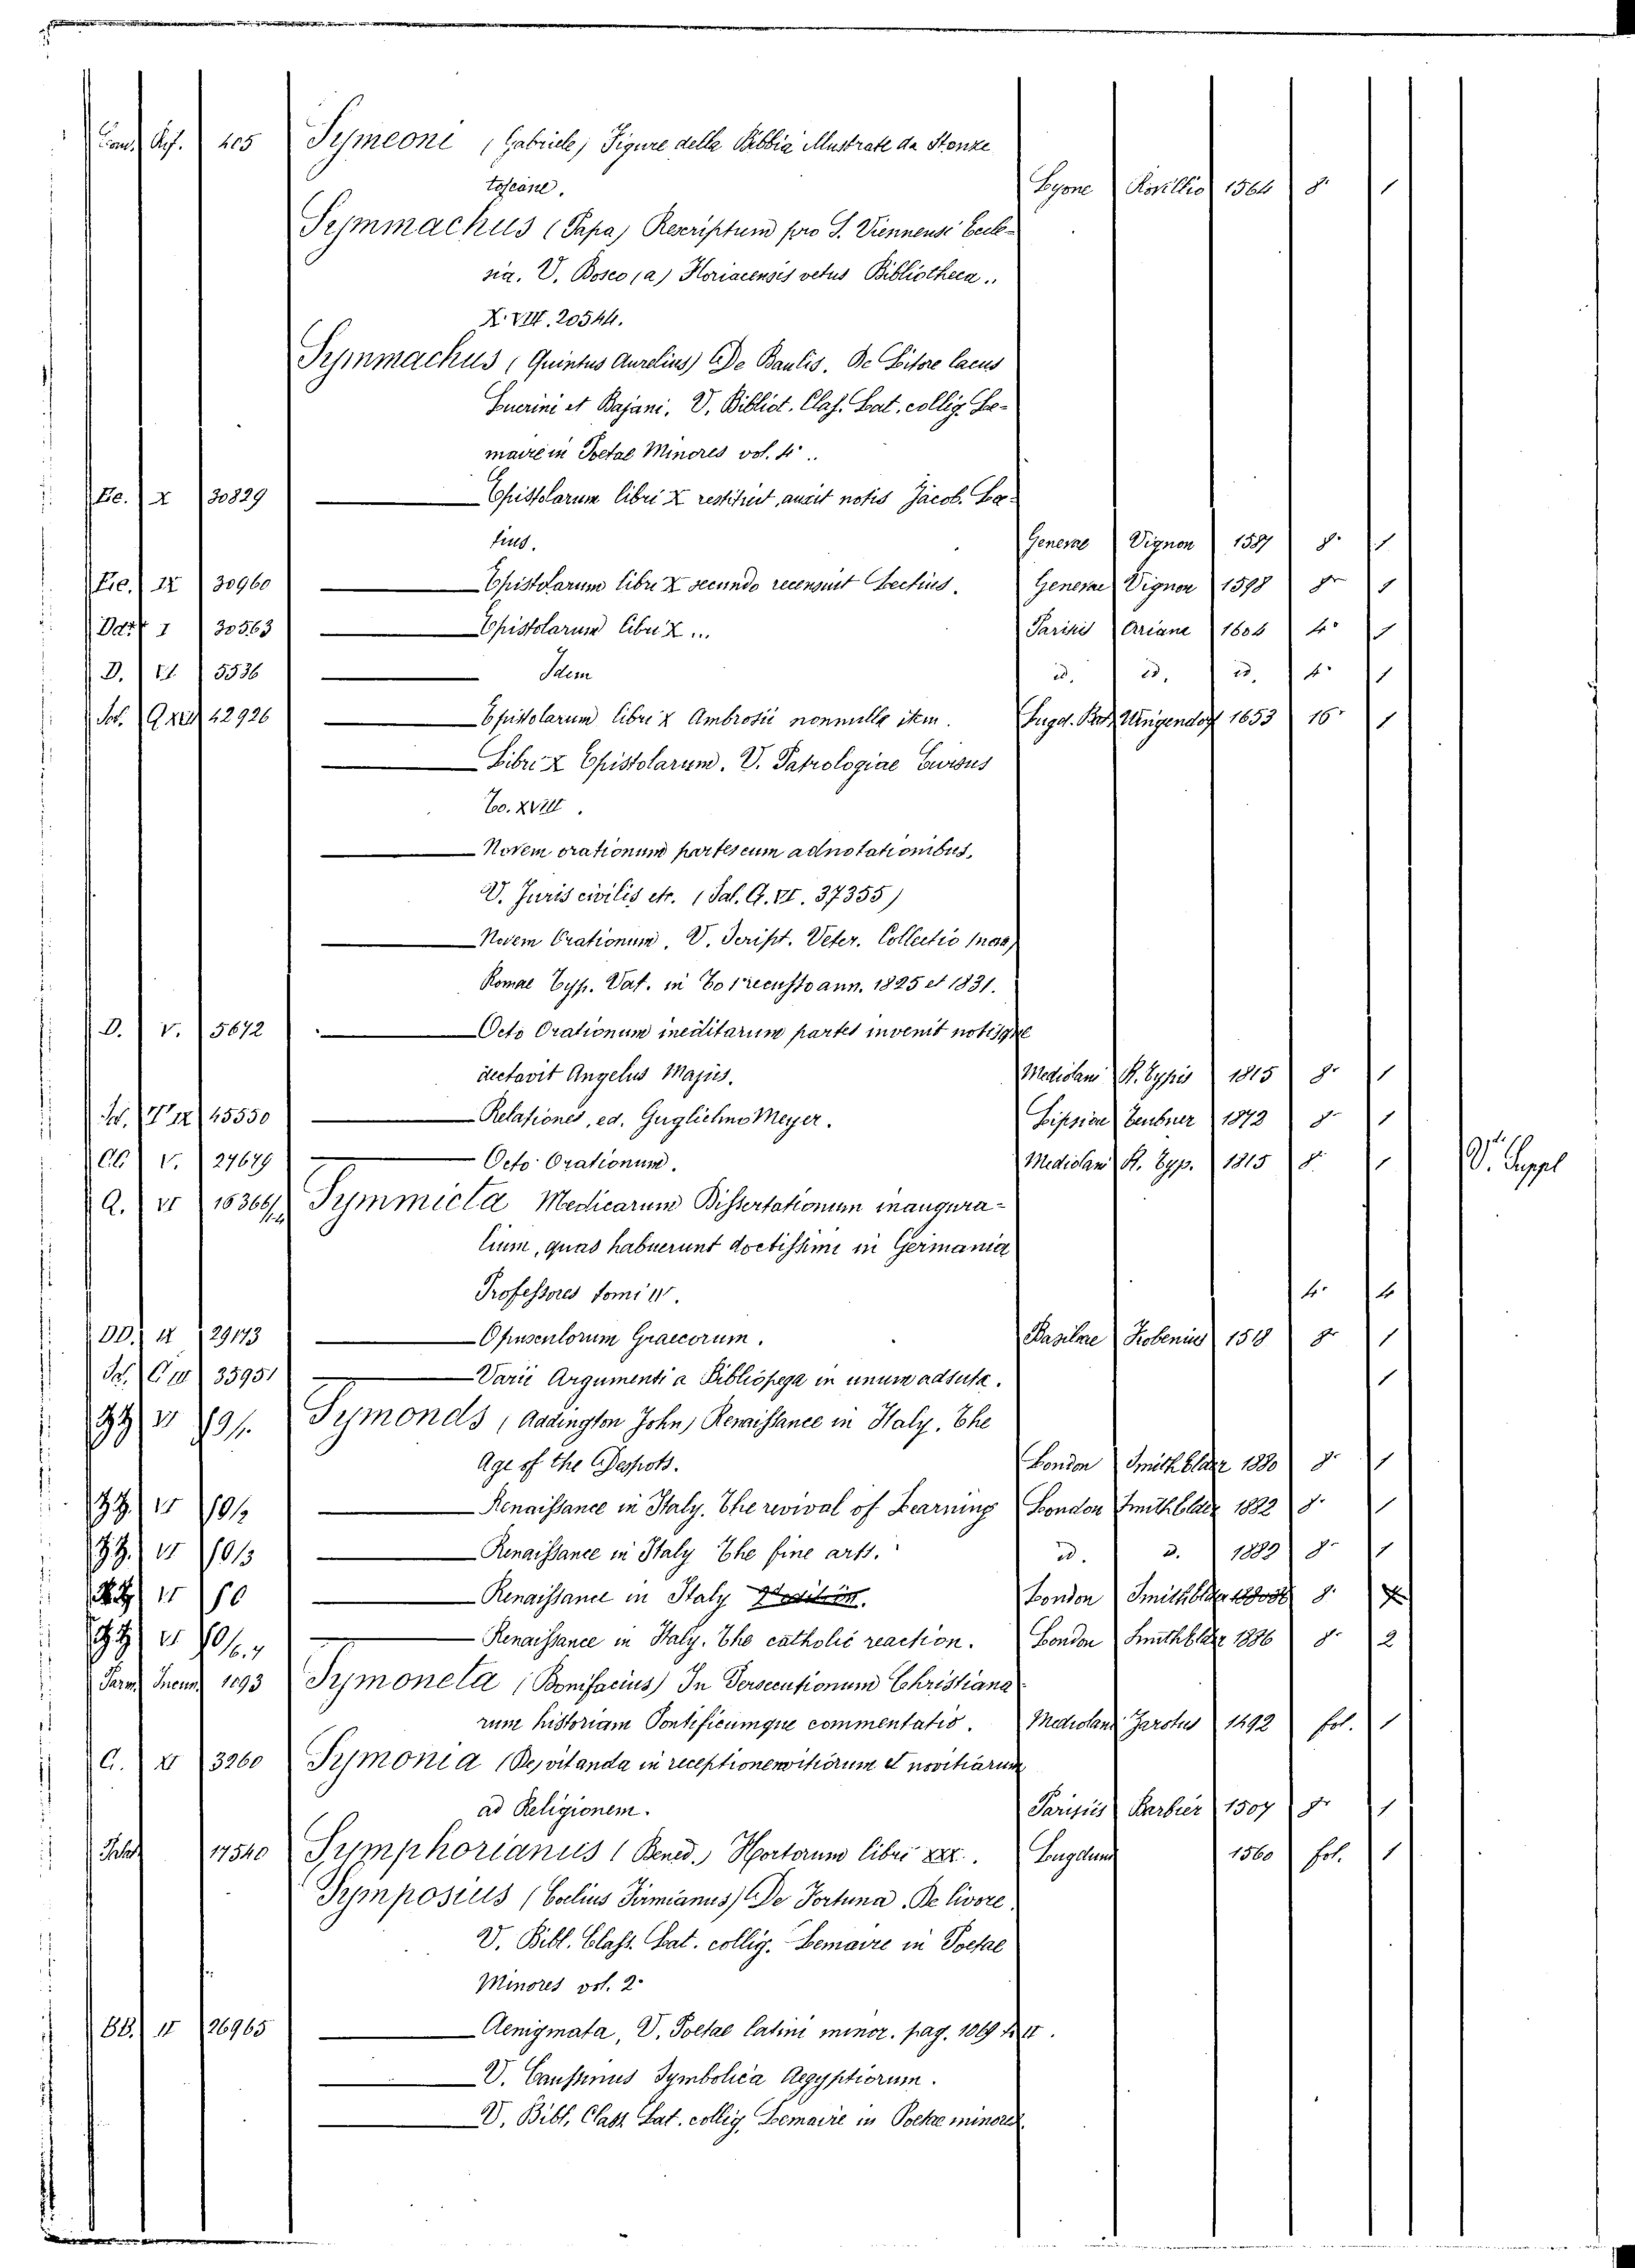 405 Symeoni (Gabriele) Figure della Bibbia illustrate da Stanze
toscane. Lyone Rovillio 1564 8° 1
Symmachus (Papa) Rescriptum pro S. Viennensi Eccle-
sia. V. Bosco (a) Floriacensis vetus Bibliotheca..
X. VIII. 20544.
Symmachus (Quintus Aurelius) De Baulis. De Litore lacus
Lucrini et Bajani. V. Bibliot. Clas. Lat. collig. Le-
maire in Poetae Minores vol. 4..
X 30829 Epistolarum libri X restituit, auxit notis Jacob. Lec-
tius. Genevae Vignon 1587 8° 1
IX 30960 Epistolarum libri X secundo recensuit Lectius. Genevae Vignon 1598 8° 1
I 30563 Epistolarum libri X... Parisiis Oriane 1604 4° 1
D. VI 5536 Idem id. id. id. 4° 1
42926 Epistolarum libri X Ambrosii nonnulla item. Lugd. Bat. Wingendorf 1653 16° 1
Libri X Epistolarum. V. Patrologiae Cursus
To. XVIII.
Novem orationum partes cum adnotationibus.
V. Juris civilis etc. (Sal. G. VI. 37355)
Novem Orationum. V. Script. Veter. Collectio (nova)
Romae Typ. Vat. in To 1 recusto ann. 1825 et 1831.
D. V. 5672 Octo Orationum ineditarum partes invenit notisque
dectavit Angelus Majus. Mediolani R. Typis 1815 8° 1
45550 Relationes, ed. Guglielmo Meyer. Lipsiae Teubner 1872 8° 1
V. 27679 Octo Orationum. Mediolani R. Typ. 1815 8° 1 V. Suppl
Q. VI 16366/1-4 Symmicta Medicarum Dissertationum inaugura-
lium, quas habuerunt doctissimi in Germania
Professores tomi IV. 4° 4
DD. IX 29173 Opusculorum Graecorum. Basileae Frobenius 1518 8° 1
35951 Varii Argumenti a Bibliopega in unum adsuta. 1
Symonds (Addington John) Renaissance in Italy. The
Age of the Despots. London Smith Elder 1880 8° 1
Renaissance in Italy. The revival of Learning London Smith Elder 1882 8° 1
Renaissance in Italy The fine arts. id. d. 1882 8° 1
Renaissance in Italy London Smith Elder 8°
Renaissance in Italy. The catholic reaction. London Smith Elder 1886 8° 2
1093 Symoneta (Bonifacius) In Persecutionum Christiana-
rum historiam Pontificumque commentatio. Mediolani Zarotus 1492 fol. 1
C. XI 3260 Symonia (De) vitanda in receptione novitiorum et novitiarum
ad Religionem. Parisiis Barbier 1507 8° 1
17540 Symphorianus (Bened.) Hortorum libri XXX. Lugduni 1560 fol. 1
Symposius (Coelius Firmianus) De Fortuna. De livore.
V. Bibl. Class. Lat. collig. Lemaire in Poetae
Minores vol. 2°
BB. II 26965 Aenigmata, V. Poetae latini minor. pag. 1069 to II.
V. Caussinus Symbolica Aegyptiorum.
V. Bibl. Class. Lat. collig. Lemaire in Poetae minores.